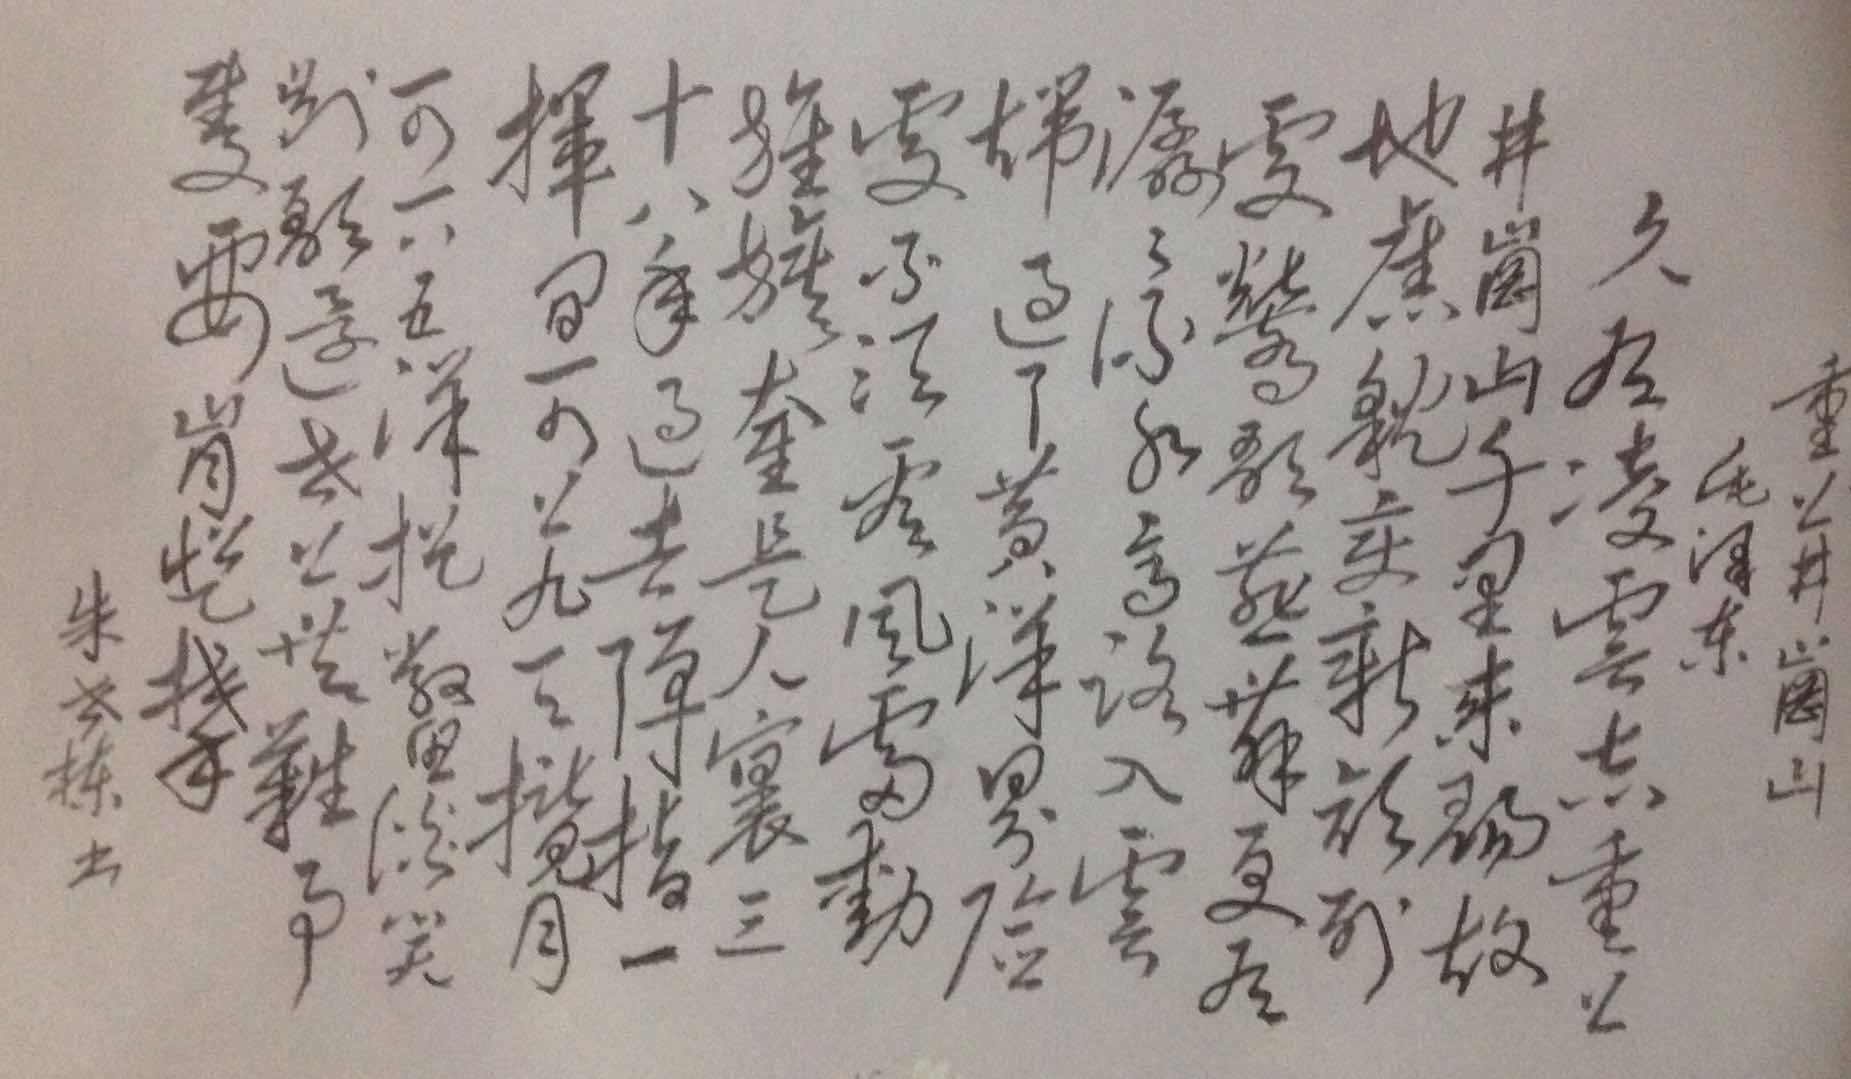 重上井崗山
毛泽东
久有凌雲志重上
井崗山千里来尋故
地舊貌变新颜到
處鶯歌燕舞更有
潺々流水高路入雲
端過了黄洋界险
處不须看風雷動
旌旗奮是人寰三
十八年過去弹指一
揮间可上九天攬月
可下五洋捉鳖谈笑
凱歌還世上無難事
隻要肯登攀
朱世栋书